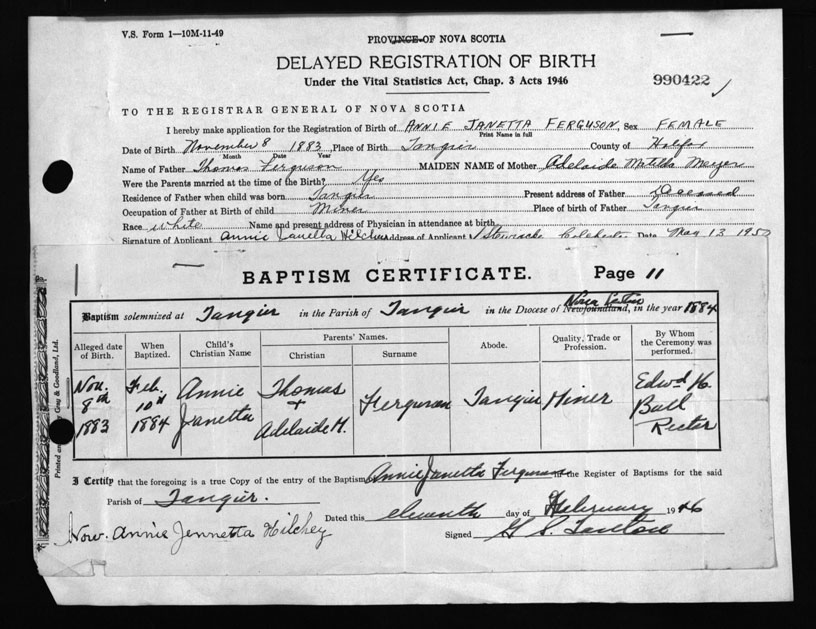 V.S. Form 1—10M-11-49
PROVINCE OF NOVA SCOTIA
DELAYED REGISTRATION OF BIRTH
Under the Vital Statistics Act, Chap. 3 Acts 1946
990422
TO THE REGISTRAR GENERAL OF NOVA SCOTIA
I hereby make application for the Registration of Birth of ANNIE JANETTA FERGUSON, Sex FEMALE
Print Name in full
Date of Birth November 8 1883 Place of Birth Tangier County of Halifax
Month Date Year
Name of Father Thomas Ferguson MAIDEN NAME of Mother Adelaide Matilda
Were the Parents married at the time of the Birth? Yes
Residence of Father when child was born Tangier Present address of Father Deceased
Occupation of Father at Birth of child Miner Place of birth of Father Tangier
Race White Name and present address of Physician in attendance at birth
Signature of Applicant Annie Janetta Hilchey Address of Applicant Stewiacke Colchester Date May 13
BAPTISM CERTIFICATE. Page 11
Baptism solemnized at Tangier in the Parish of Tangier in the Diocese of Newfoundland, Nova Scotia in the year 1884
Alleged date of Birth.
When Baptized.
Child's Christian Name
Parents' Names.
Christian
Surname
Abode.
Quality, Trade or Profession.
By Whom the Ceremony was performed.
Nov. 8th 1883
Feb. 10th 1884
Annie Janetta
Thomas + Adelaide M.
Ferguson
Tangier
Miner
Edwd H. Ball Rector
I Certify that the foregoing is a true Copy of the entry of the Baptism Annie Janetta Ferguson in the Register of Baptisms for the said
Parish of Tangier.
Dated this eleventh day of February 1946
Now. Annie Jennetta Hilchey
Signed G S.
Gray & Goodland, Ltd.